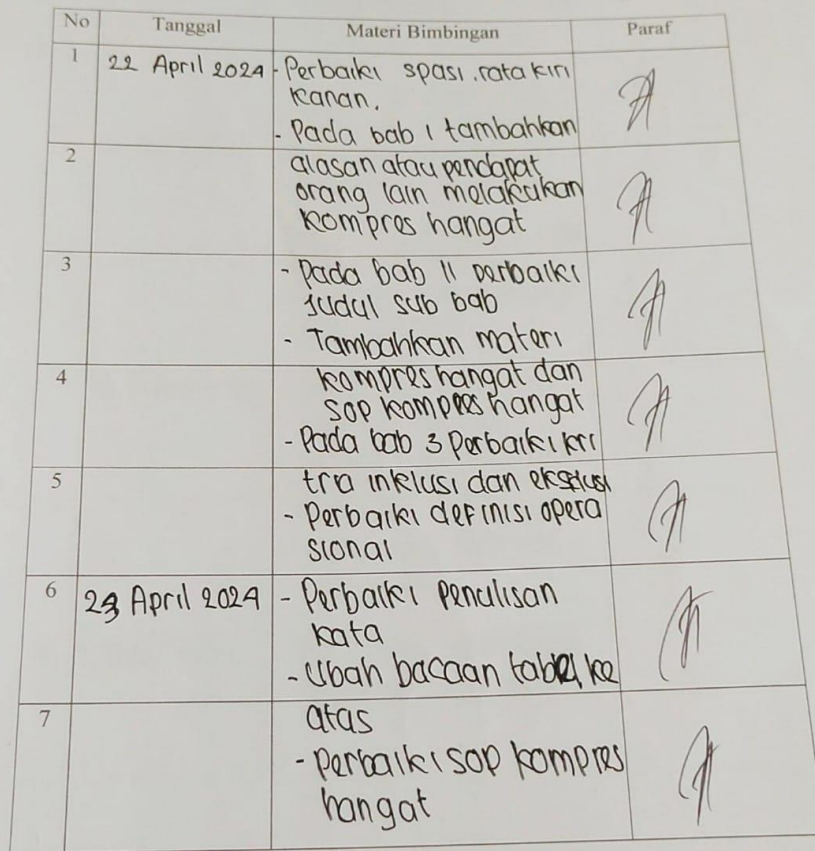 No Tanggal Materi Bimbingan Paraf
1 22 April 2024 - Perbaiki spasi, rata kiri
kanan.
- Pada bab 1 tambahkan
2 alasan atau pendapat
orang lain melakukan
kompres hangat
3 - Pada bab II perbaiki
judul sub bab
- Tambahkan materi
4 kompres hangat dan
SOP kompres hangat
- Pada bab 3 Perbaiki kri
5 tra inklusi dan eksklusi
- Perbaiki definisi opera
sional
6 23 April 2024 - Perbaiki Penulisan
kata
- Ubah bacaan tabel ke
7 atas
- Perbaiki SOP kompres
hangat